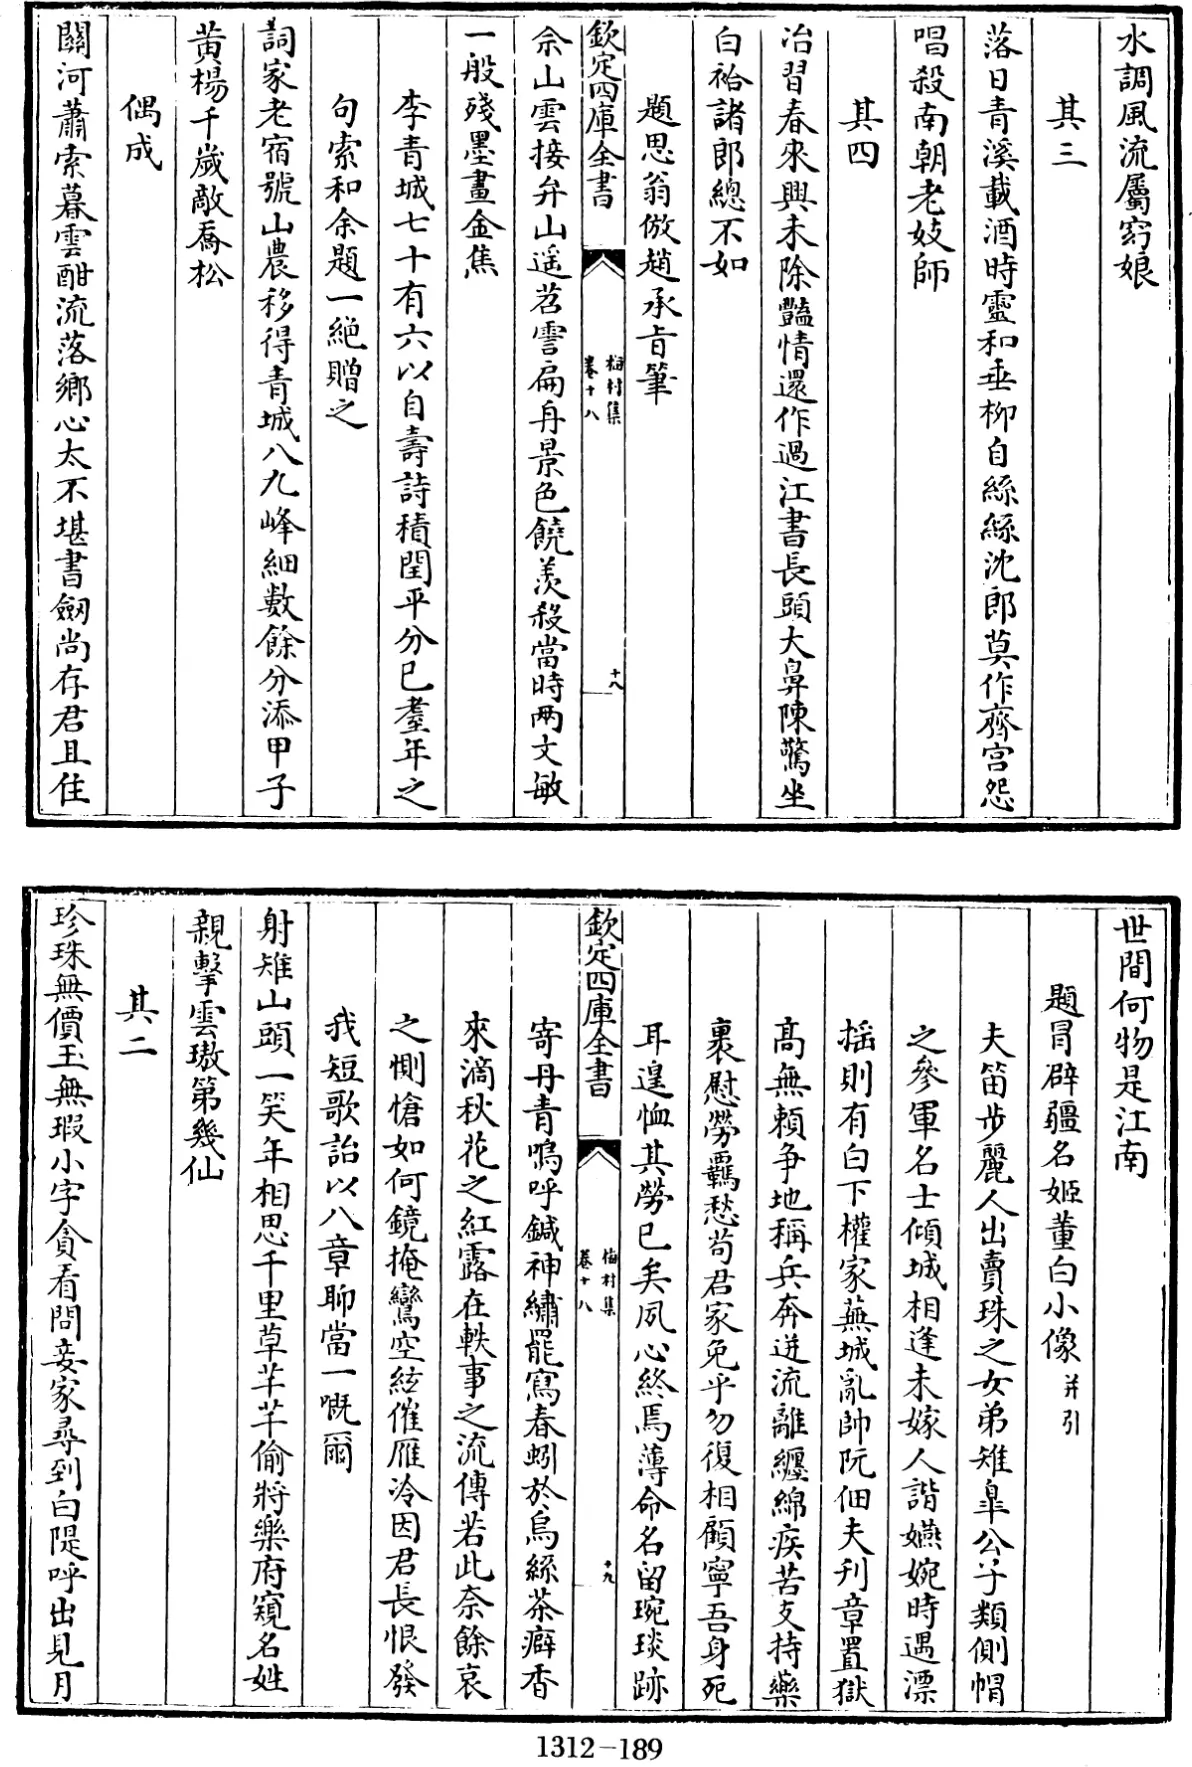 水調風流屬窈娘
其三
落日青溪載酒時靈和垂柳自絲絲沈郎莫作齊宮怨
唱殺南朝老妓師
其四
冶習春來興未除豔情還作過江書長頭大鼻陳驚坐
白袷諸郎總不如
題思翁倣趙承旨筆
欽定四庫全書
梅村集
卷十八
十八
佘山雲接弁山遥苕霅扁舟景色饒羨殺當時兩文敏
一般殘墨畫金焦
李青城七十有六以自壽詩積閏平分已耋年之
句索和余題一絶贈之
詞家老宿號山農移得青城八九峰細數餘分添甲子
黄楊千歲敵喬松
偶成
關河蕭索暮雲酣流落鄉心太不堪書劒尚存君且住
世間何物是江南
題冒辟疆名姬董白小像并引
夫笛步麗人出賣珠之女弟雉臯公子類側帽
之參軍名士傾城相逢未嫁人諧嬿婉時遇漂
揺則有白下權家蕪城亂帥阮佃夫刋章置獄
髙無賴争地稱兵奔迸流離纏綿疾苦支持藥
裹慰勞羈愁苟君家免乎勿復相顧寧吾身死
耳遑恤其勞已矣夙心終焉薄命名留琬琰跡
欽定四庫全書
梅村集
卷十八
十九
寄丹青嗚呼鍼神繡罷寫春蚓於烏絲茶癖香
來滴秋花之紅露在軼事之流傳若此奈餘哀
之惻愴如何鏡掩鸞空絃催雁冷因君長恨發
我短歌詒以八章聊當一嘅爾
射雉山頭一笑年相思千里草芊芊偷將樂府窺名姓
親擊雲璈第幾仙
其二
珍珠無價玉無瑕小字貪看問妾家尋到白隄呼出見月
1312-189